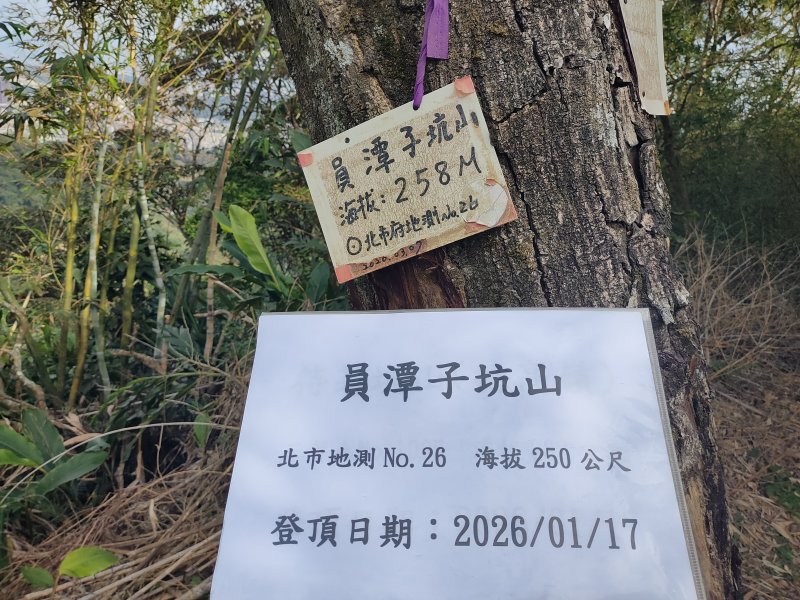 員潭子坑山
海拔:258M
⊙北市府地測No.26
2020.03.07
員潭子坑山
北市地測 No. 26 海拔 250 公尺
登頂日期：2026/01/17